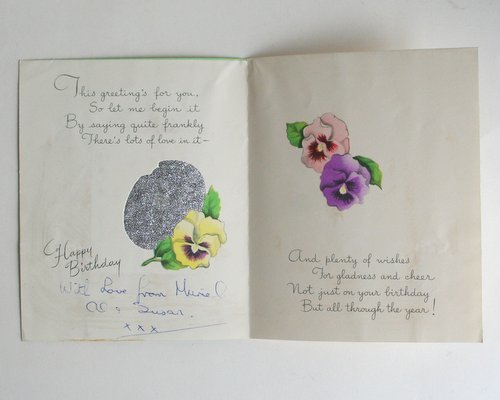 This greeting's for you,
So let me begin it
By saying quite frankly
There's lots of love in it—
Happy
Birthday
With Love from Muriel
Al & Susan.
x x x
And plenty of wishes
For gladness and cheer
Not just on your birthday
But all through the year!